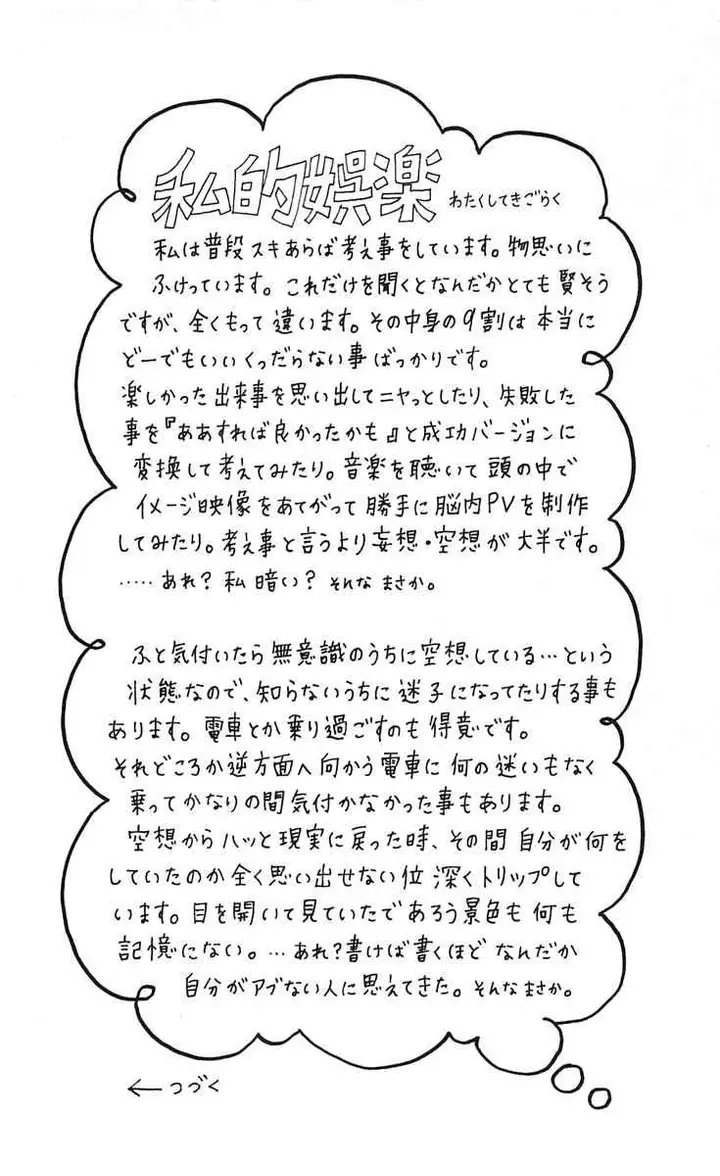 私的娯楽 わたくしてきごらく
私は普段スキあらば考え事をしています。物思いに
ふけっています。これだけを聞くとなんだかとても賢そう
ですが、全くもって違います。その中身の9割は本当に
どーでもいいくっだらない事ばっかりです。
楽しかった出来事を思い出してニヤっとしたり、失敗した
事を『ああすれば良かったかも』と成功バージョンに
変換して考えてみたり。音楽を聴いて頭の中で
イメージ映像をあてがって勝手に脳内PVを制作
してみたり。考え事と言うより妄想・空想が大半です。
……あれ?私暗い?そんなまさか。
ふと気付いたら無意識のうちに空想している…という
状態なので、知らないうちに迷子になってたりする事も
あります。電車とか乗り過ごすのも得意です。
それどころか逆方面へ向かう電車に何の迷いもなく
乗ってかなりの間気付かなかった事もあります。
空想からハッと現実に戻った時、その間自分が何を
していたのか全く思い出せない位深くトリップして
います。目を開いて見ていたであろう景色も何も
記憶にない。…あれ?書けば書くほどなんだか
自分がアブない人に思えてきた。そんなまさか。
←つづく